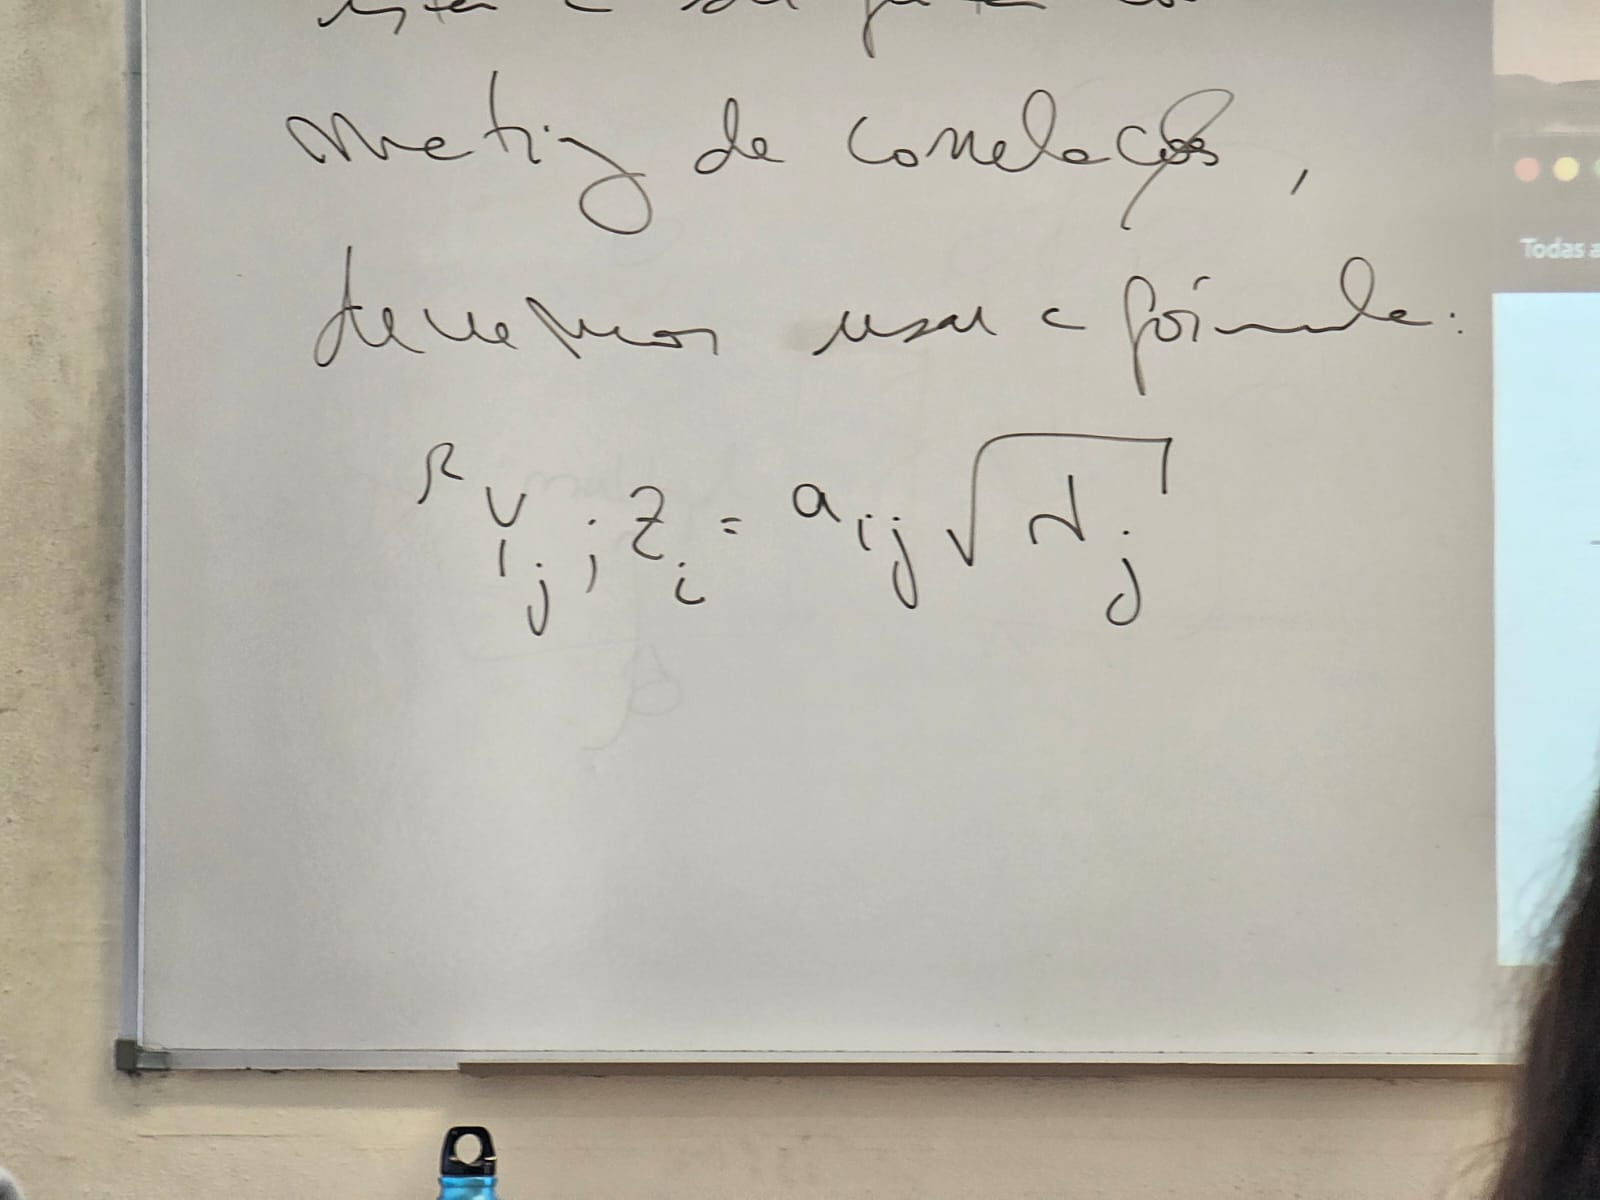 matriz de correlações,
devemos usar a fórmula:
r Y_j ; Z_i = a_ij √λ_j
Todas a